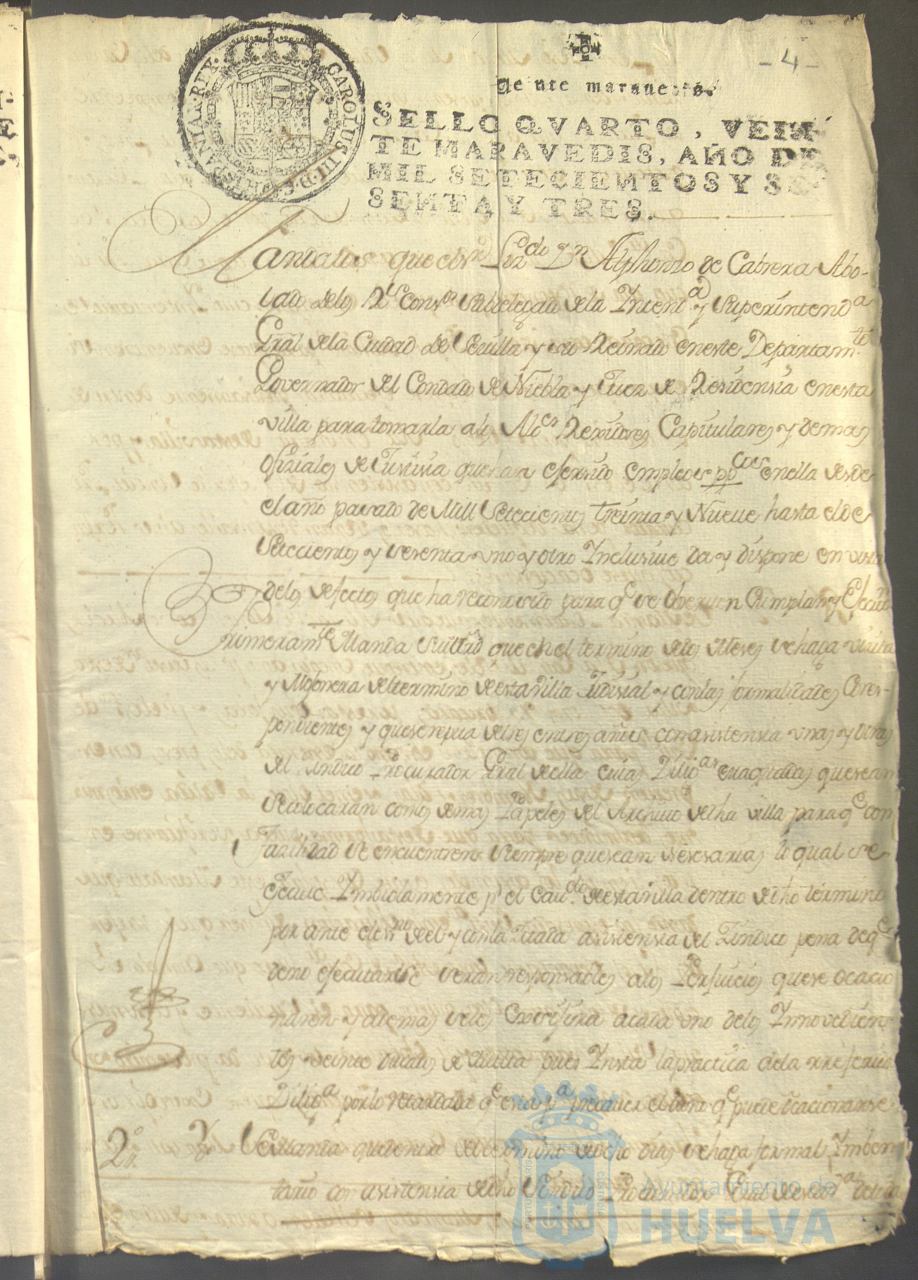 -4-
CAROLUS III D G HISPANIAR REX
Veinte maravedis.
SELLO QVARTO, VEIN-
TE MARAVEDIS, AÑO DE
MIL SETECIENTOS Y SE-
SENTA Y TRES.
Mandatos que el Sr. Licdo Dn Alphonso de Cabrera Abo-
gado delos Rs Consos Subdelegado dela Intenta y Superintenda
Gral dela Ciudad de Sevilla y su Reinado en este Departamto
Governador del Condado de Niebla y Juez de Residensia en esta
villa para tomarla a los Alces Rexidores Capitulares y demas
ofiziales de Justisia que han exersido empleos ppcos en ella desde
el año pasado de Mill Setecientos treinta y Nueue hasta el de
Setecientos y sesenta y uno y otro Inclusiue da y dispone en vista
delos defectos que ha reconosido para qe se obseruen Cumplan y Executen
Primeramte Manda su Mrd que en el termino de dos Meses se haga visita
y Mojonera del termino de esta Villa Judisial y con las formalidades Corres-
pondientes y que se repita delos en dos años con asistensia unas y otras
del Sindico Procurador Gral de ella cuias Dilixas evaquadas que sean
se colocaran como demas Papeles del Archivo de dha villa para qe con
fazilidad se encuentren siempre que sean nesesarias lo qual se
execute Imbiolamente pr el Cauildo de esta villa dentro de dho termino
por ante el essno de el y con la zitada asistensia del Sindico pena de qe
de no executarse seran responsables a los Perjuicios que se ocacio
naren y ademas se les Exsixira a cada uno de los Innovedien-
tes veinte ducados de multa pues Insta la practica dela
Dilixa por lo retardada qe esta y a precauer el daño qe puede ocacionarse
2º Yt Manda que dentro del termino de ocho dias se haga formal Imben-
tario con asistensia de dho Sindico Procurador Gral
Ayuntamiento de
HUELVA